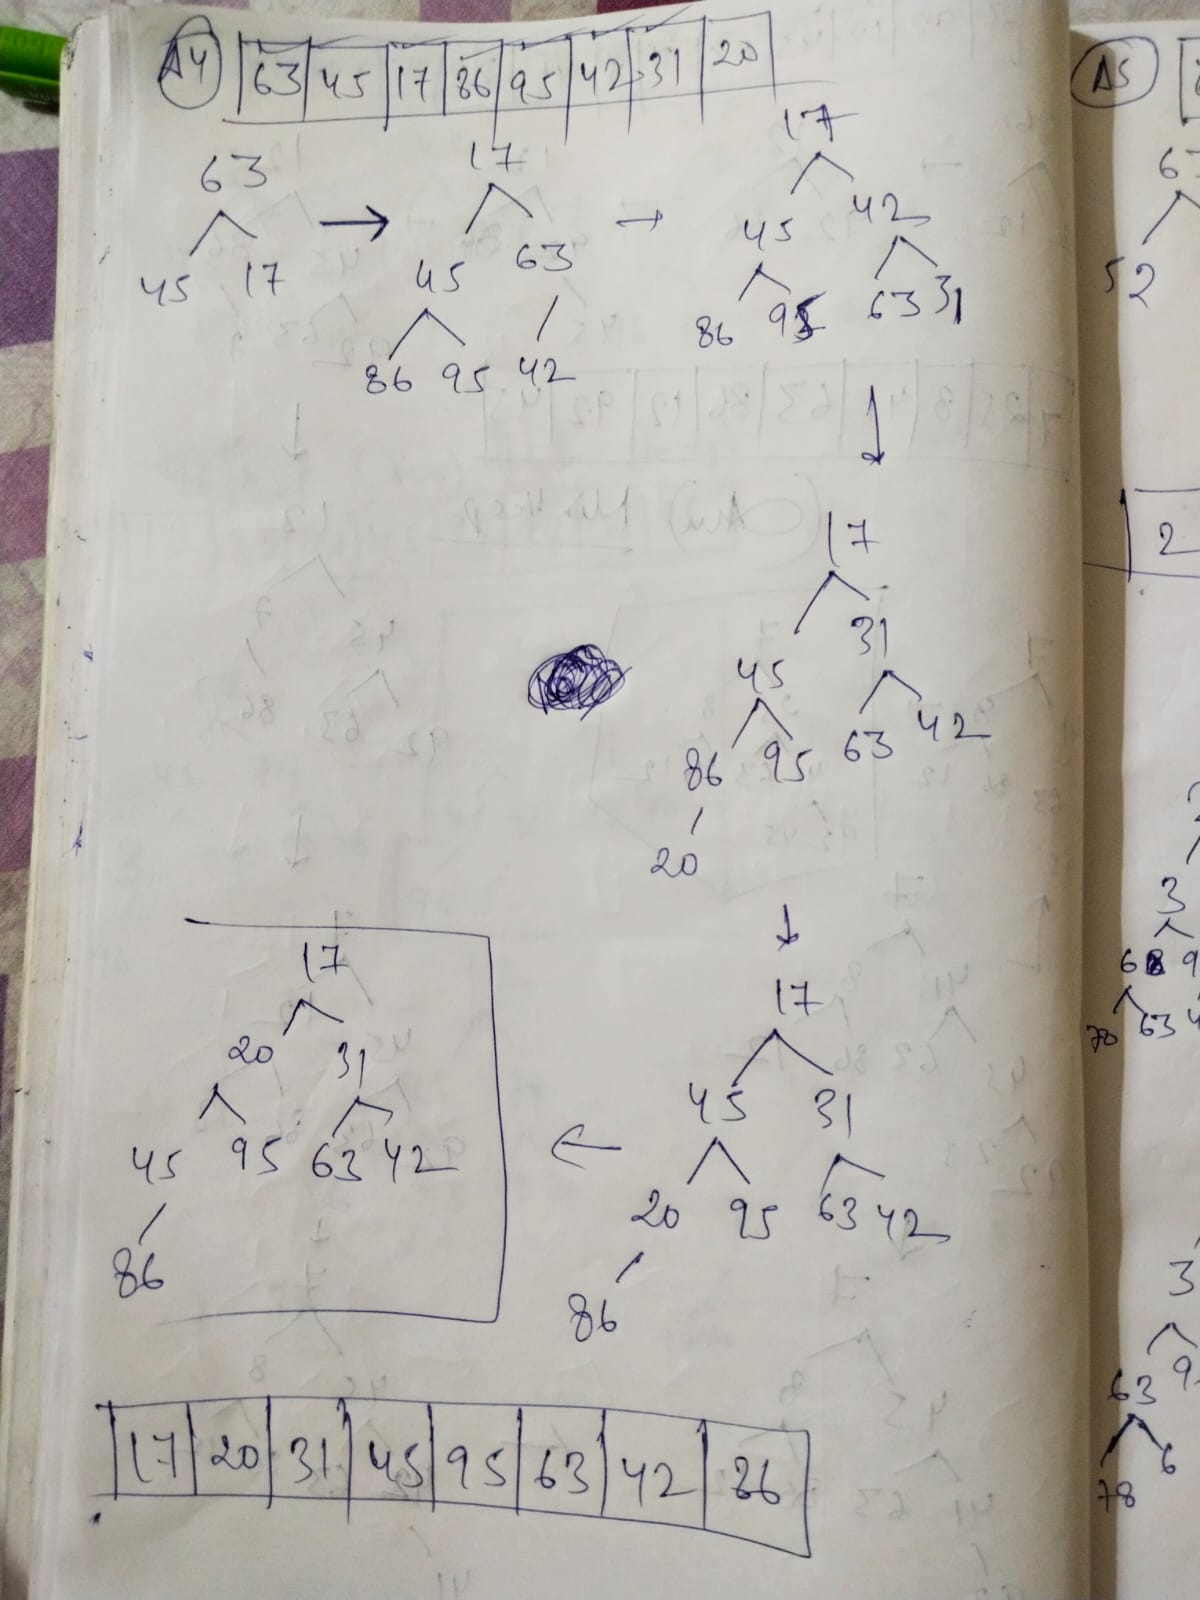 A4 63 45 17 86 95 42 31 20
A5
63 17 17
45 17 45 63 45 42
86 95 42 86 95 63 31
52
17
45 31
86 95 63 42
20
2
17
45 31
20 95 63 42
86
17
20 31
45 95 63 42
86
17 20 31 45 95 63 42 86
3
78 63
3
63
78 6